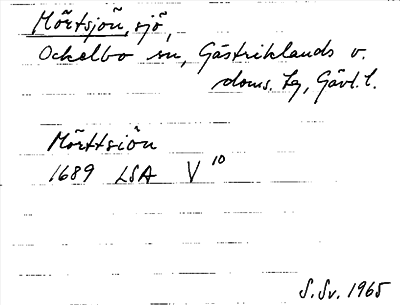 Mörtsjön, sjö,
Ockelbo sn, Gästriklands v.
doms. tg, Gävl. l.
Mörttsiön
1689 LSA V 10
S.Sv. 1965